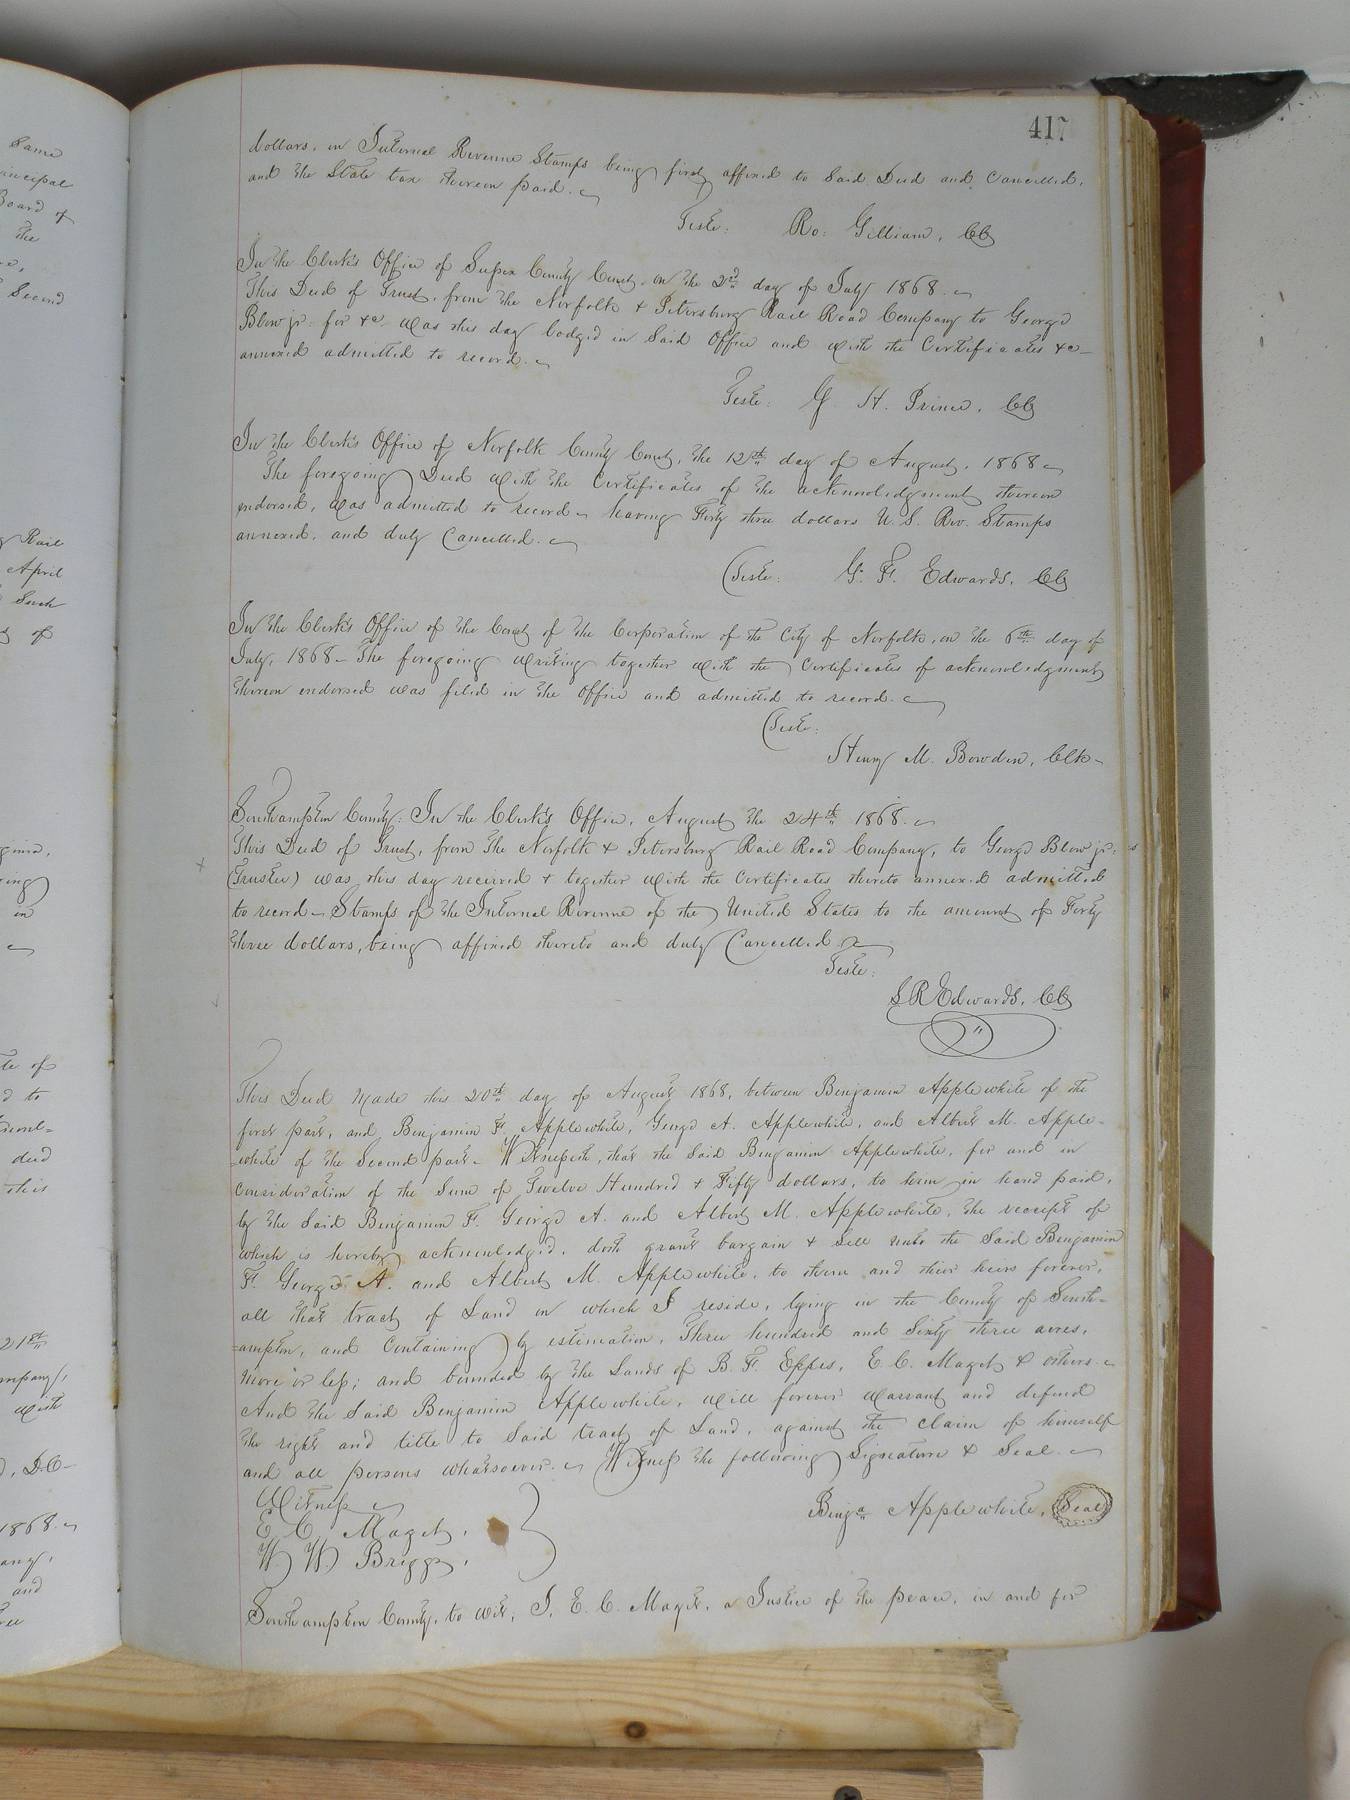 417
dollars, in Internal Revenue Stamps being first affixed to Said Deed and Cancelled,
and the State tax thereon paid.
Teste: Ro: Gilliam, CC
In the Clerk's Office of Sussex County Court, on the 2nd day of July 1868.
This Deed of Trust, from the Norfolk & Petersburg Rail Road Company to George
Blow jr. for &c. was this day lodged in Said Office and with the Certificates &c
annexed admitted to record.
Teste: G. H. Prince, CC
In the Clerk's Office of Norfolk County Court, the 12th day of August, 1868
The foregoing Deed with the Certificates of the acknowledgment thereon
endorsed, was admitted to record having Forty three dollars U.S. Rev. Stamps
annexed, and duly Cancelled.
Teste: G. F. Edwards, CC
In the Clerk's Office of the Court of the Corporation of the City of Norfolk, on the 6th day of
July, 1868 – The foregoing writing together with the Certificates of acknowledgment
thereon endorsed was filed in the Office and admitted to record.
Teste:
Henry M. Bowden, Clk
Southampton County: In the Clerk's Office, August the 24th 1868.
This Deed of Trust, from The Norfolk & Petersburg Rail Road Company, to George Blow jr:
(Trustee) was this day received & together with the Certificates thereto annexed admitted
to record – Stamps of the Internal Revenue of the United States to the amount of Forty
three dollars, being affixed thereto and duly Cancelled
Teste:
L R Edwards, CC
This Deed Made this 20th day of August 1868, between Benjamin Applewhite of the
first part, and Benjamin F. Applewhite, George A. Applewhite, and Albert M. Apple-
=white of the Second part – Witnesseth, that the Said Benjamin Applewhite, for and in
Consideration of the Sum of Twelve Hundred & Fifty dollars, to him in hand paid,
by the Said Benjamin F. George A. and Albert M. Applewhite, the receipt of
which is hereby acknowledged, doth grant bargain & Sell unto the Said Benjamin
F. George A. and Albert M. Applewhite, to them and their heirs forever,
all that tract of Land on which I reside, lying in the County of South=
=ampton, and Containing by estimation, Three hundred and Sixty three acres,
more or less; and bounded by the Lands of B. F. Eppes, E. C. Maget & others.
And the Said Benjamin Applewhite, will forever Warrant and defend
the right and title to Said tract of Land, against the claim of himself
and all persons whatsoever. Witness the following Signature & Seal.
Witness
Benja Applewhite, Seal
E. C. Maget,
W W Briggs,
Southampton County, to wit, I, E. C. Maget, a Justice of the peace, in and for